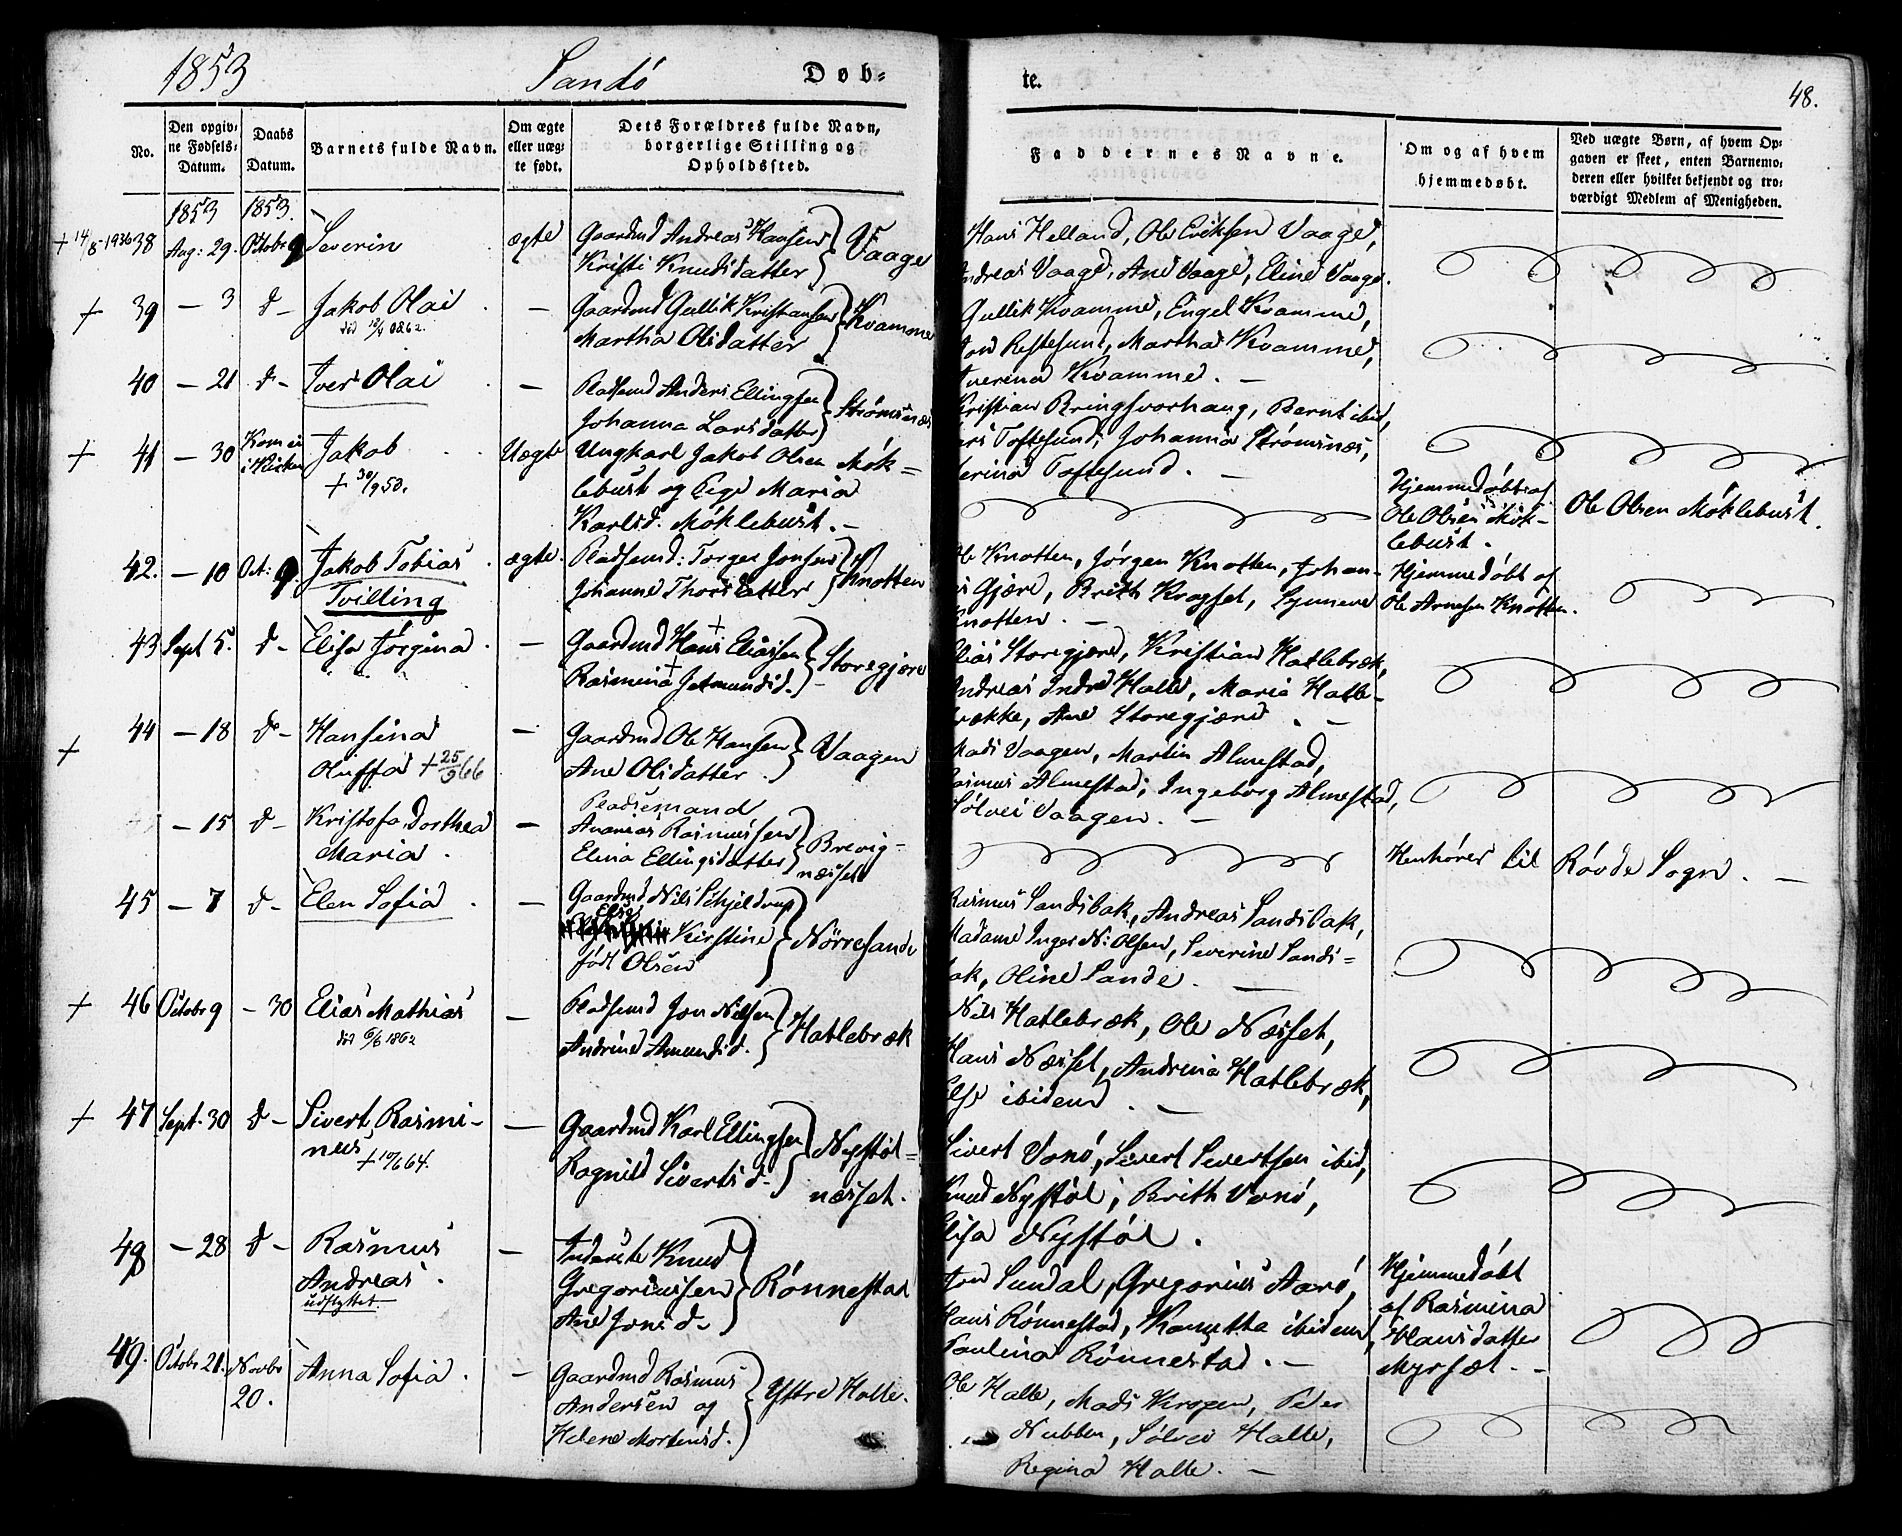 1853 Sandö Döb= te. 48.
No.
Den opgiv=
ne Fødsels=
Datum.
Daabs
Datum.
Barnets fulde Navn.
Om ægte
eller uæg=
te født.
Dets Forældres fulde Navn,
borgerlige Stilling og
Opholdssted.
Faddernes Navne.
Om og af hvem
hjemmedøbt.
Ved uægte Børn, af hvem Op=
gaven er skeet, enten Barnemo=
deren eller hvilket bekjendt og tro=
værdigt Medlem af Menigheden.
1853 1853.
+ 14/8-1936 38 Aug: 29. Octobr 9 Severin ægte Gaardmd Andreas Hansen
Kristi Knudsdatter } Vaage
Hans Helland, Ole Eriksen Vaage,
Andreas Vaage, Ane Vaage, Eline Vaage.
+ 39 — 3 d— Jakob Olai — Gaardmd Gullik Kristiansen
død 10/4 1862.
Martha Olsdatter } Kvamme
Gullik Kvamme, Engel Kvamme,
Martha Kvamme,
Kvamme. —
40 — 21 d— Iver Olai — Pladsmd Anders Ellingsen
Johanna Larsdatter } Strømsnæs
Kristian Bringsvorhaug, Bernt ibid,
Lars Toftesund, Johanna Strømsnæs,
Toftesund. —
+ 41 — 30 Kom ei
i Kirken
Jakob
+ 30/9 53.
Uægte Ungkarl Jakob Olsen Mök=
lebust og Pige Maria
Karlsd. Möklebust. —
Hjemmedöbt af
Ole Olsen Mök-
lebust.
Ole Olsen Möklebust.
42. — 10 Oct: 9. Jakob Tobias
Tvilling
ægte. Pladsmd: Torger Jonsen
Johanne Thorsdatter } Knotten
Ole Knotten, Jørgen Knotten, Johan-
Gjære, Brith Kragset, Synneve
Knotten. —
Hjemmedöbt af
Ole Arnesen Knotten.
43 Sept 5. d— Elisa Jørgina. — Gaardmd Hans Eliassen
Rasmina Jetmundsd. } Storegjære
Elias Storegjære, Kristian Hatlebræk,
Andreas Indre Halle, Maria Hatle-
brække, Ane Storegjære. —
+ 44 — 18 d— Hansina
Oluffa + 25/9 66
— Gaardmd Ole Hansen
Ane Olsdatter. } Vaagen
Mads Vaagen, Martin Almestad,
Rasmus Almestad, Ingeborg Almestad,
Sölvei Vaagen. —
— 15 d— Kristofa Dorthea
Maria.
— Pladsemand
Ananias Rasmussen
Elina Ellingsdatter } Brevig-
næsset
Henhörer til Rövde Sogn. —
45 — 7 d— Elen Sofia. — Gaardmd Nils Schjeldrup
Else
Kirstine
födt Olsen } Nörresande
Rasmus Sandsbak, Andreas Sandsbak,
Madame Inger N: Olsen, Severine Sands=
bak, Oline Sande. —
+ 46 Octobr 9 — 30 Elias Mathias
død 6/6 1862
— Pladsmd Jon Nilsen
Andrine Amundsd. } Hatlebræk
Nils Hatlebræk, Ole Næsset,
Hans Næsset, Andrina Hatlebræk,
Else ibidem. —
+ 47 Sept. 30 d— Sivert Rasmi-
nus
+ 10/6 64.
— Gaardmd Karl Ellingsen
Ragnild Sivertsd. } Nystöl=
næsset.
Sivert Vonö, Sivert Sivertsen ibid,
Knud Nystöl, Brith Vonö,
Elisa Nystöl.
48 — 28 d— Rasmus
Andreas.
udflyttet.
— Inderste Knud
Gregoriussen
Ane Jonsd. } Rönnestad
Jon Sundal, Gregorius Aarö,
Hans Rönnestad, ibidem,
Paulina Rönnestad. —
Hjemmedöbt
af Rasmina
Hansdatter
Myrsæt. —
49. Octobr 21. Novbr
20.
Anna Sofia. — Gaardmd Rasmus
Andersen og
Helene Mortensd. } Ystre Halle.
Ole Halle, Mads Kragen, Peder
Nubben, Sölvei Halle,
Regina Halle. —